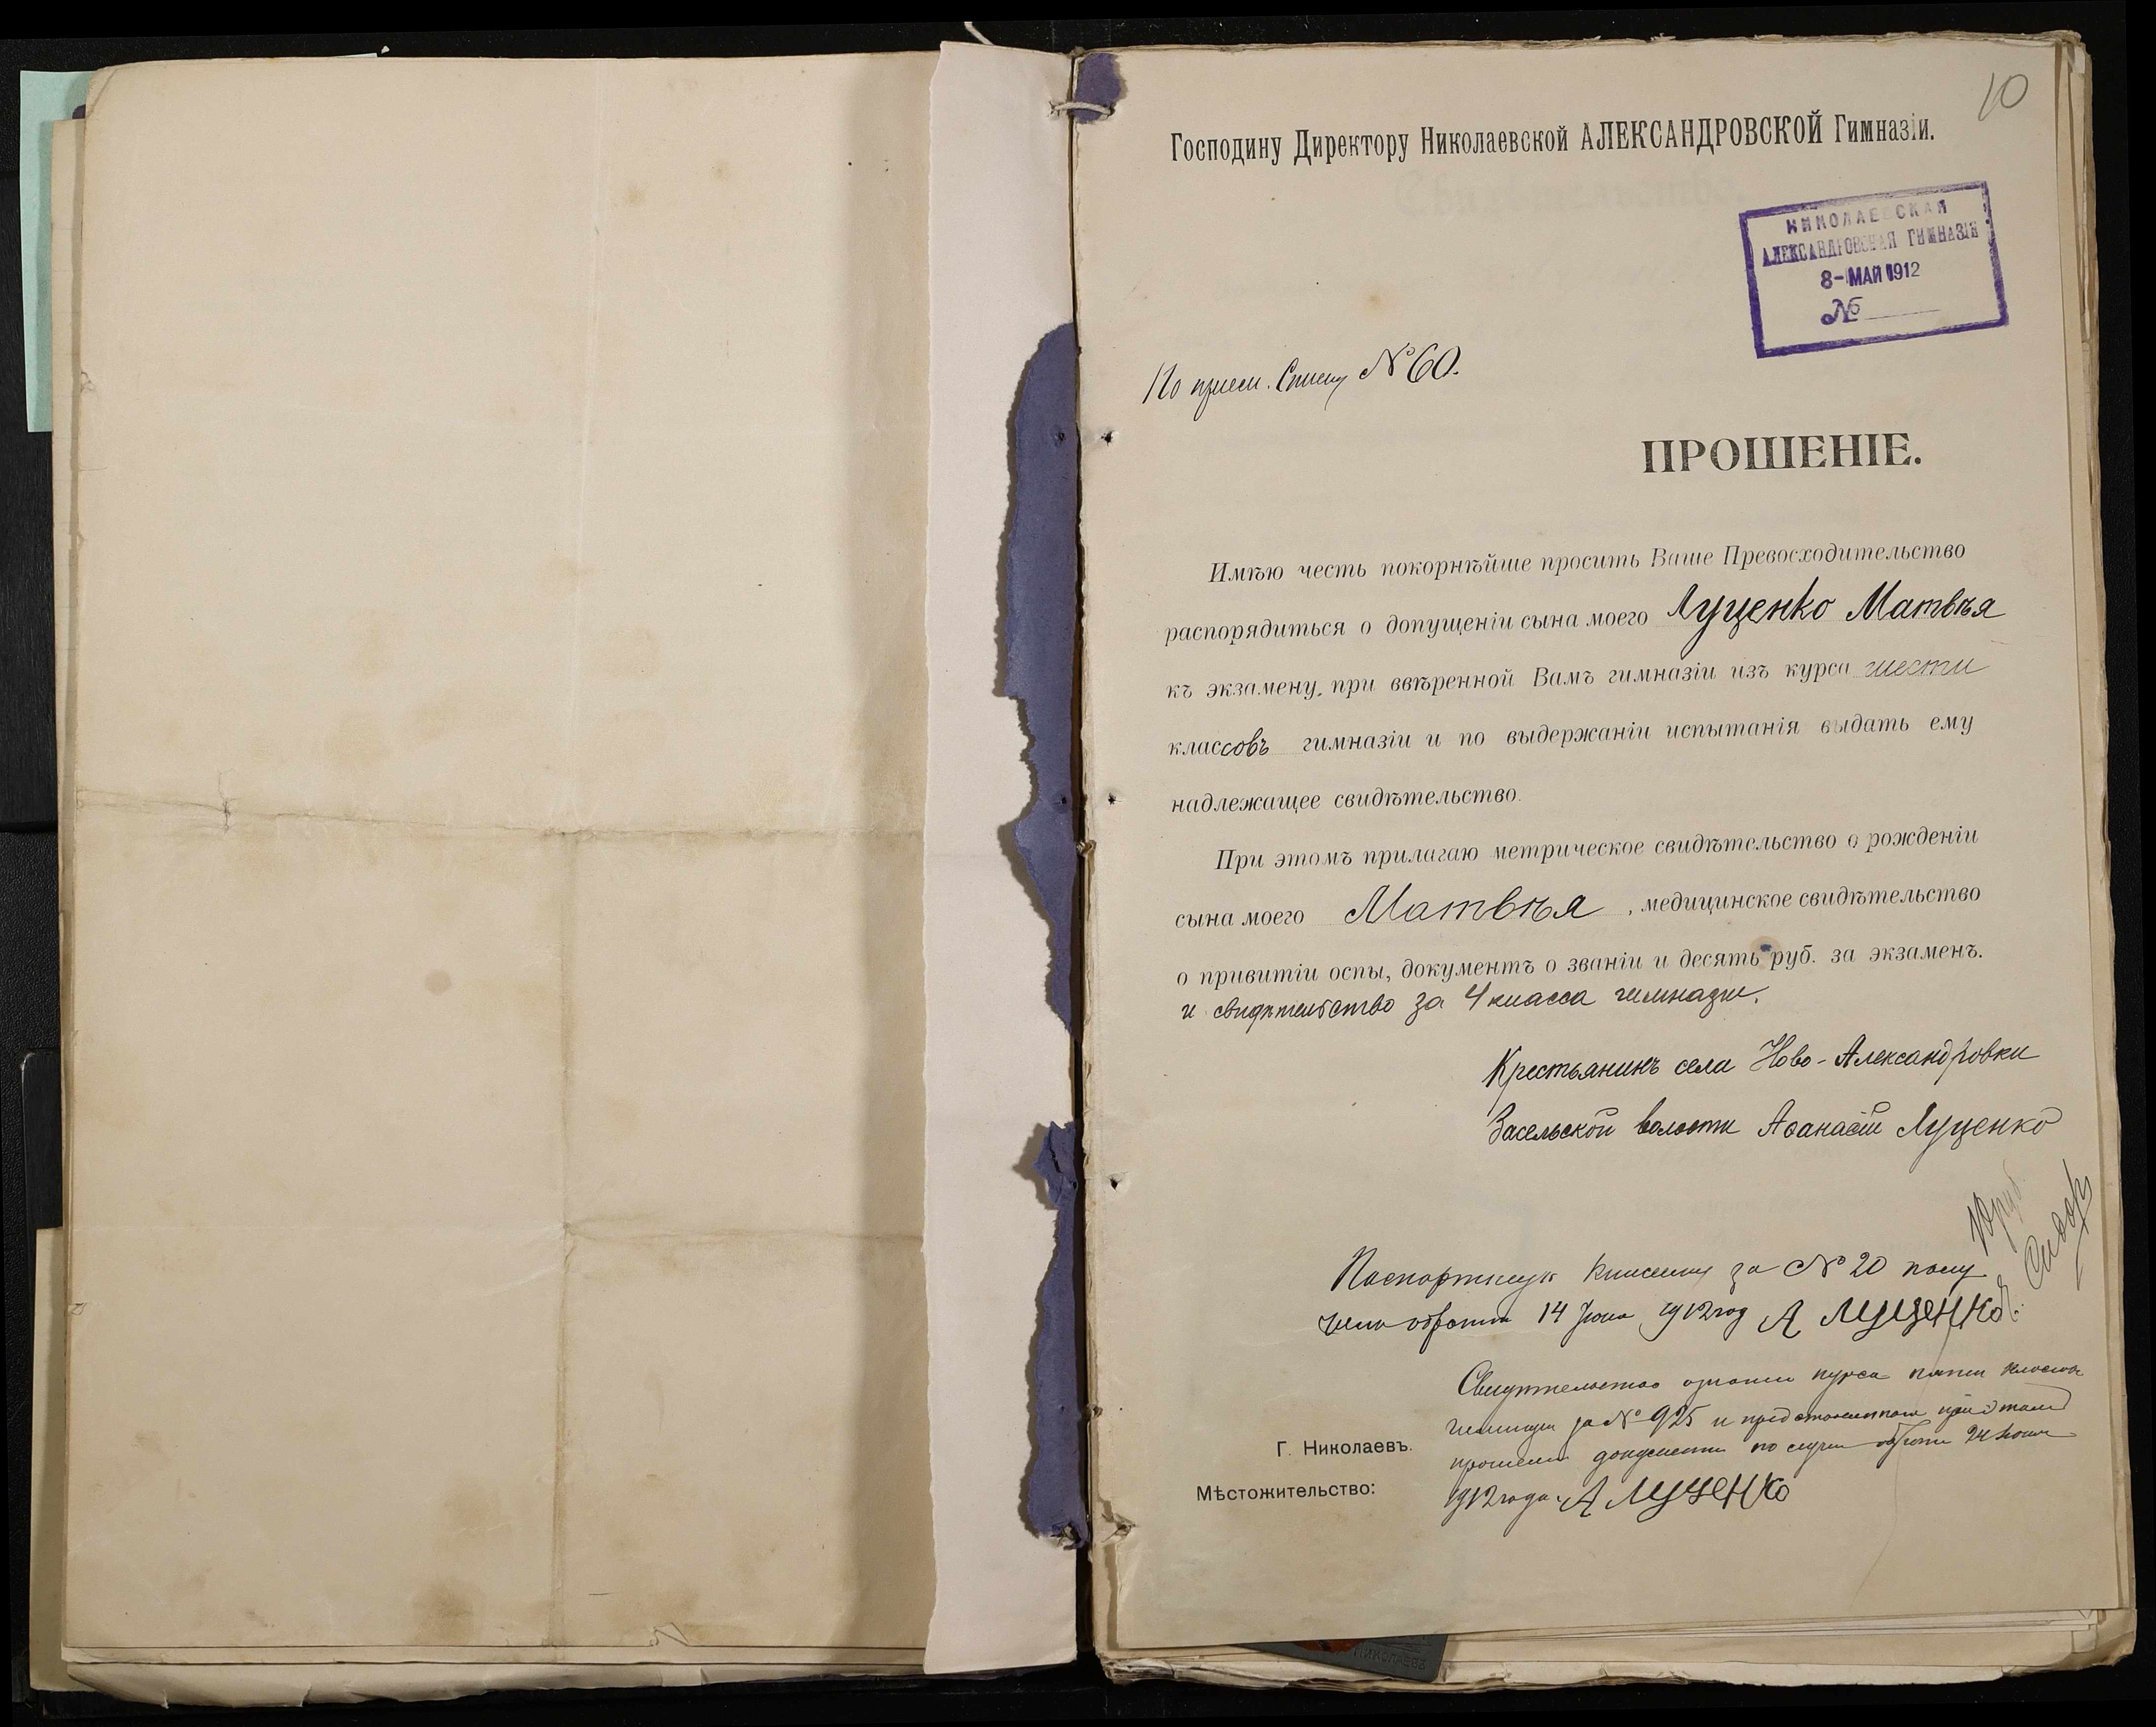 10
Господину Директору Николаевской АЛЕКСАНДРОВСКОЙ Гимназіи.
НИКОЛАЕВСКАЯ
АЛЕКСАНДРОВСКАЯ ГИМНАЗІЯ
8-МАЙ 1912
№
По прием. Списку № 60.
ПРОШЕНІЕ.
Имѣю честь покорнѣйше просить Ваше Превосходительство
распорядиться о допущеніи сына моего Луценко Матвѣя
къ экзамену, при ввѣренной Вамъ гимназіи изъ курса шести
классовъ гимназіи и по выдержаніи испытанія выдать ему
надлежащее свидѣтельство.
При этомъ прилагаю метрическое свидѣтельство о рожденіи
сына моего Матвѣя, медицинское свидѣтельство
о привитіи оспы, документъ о званіи и десять руб. за экзаменъ.
и свидѣтельство за 4 класса гимназіи.
Крестьянинъ села Ново-Александровки
Засельской волости Аѳанасій Луценко
10 руб.
Паспортную книжку за № 20 полу
чилъ обратно 14 Іюня 1912 год А Луценко
Свидѣтельство о знаніи курса пяти классовъ
гимназіи за № 925 и представленные при этомъ
прошеніи документы обратно 24 Іюня
1912 года. А Луценко
Г. Николаевъ.
Мѣстожительство:
НИКОЛАЕВЪ